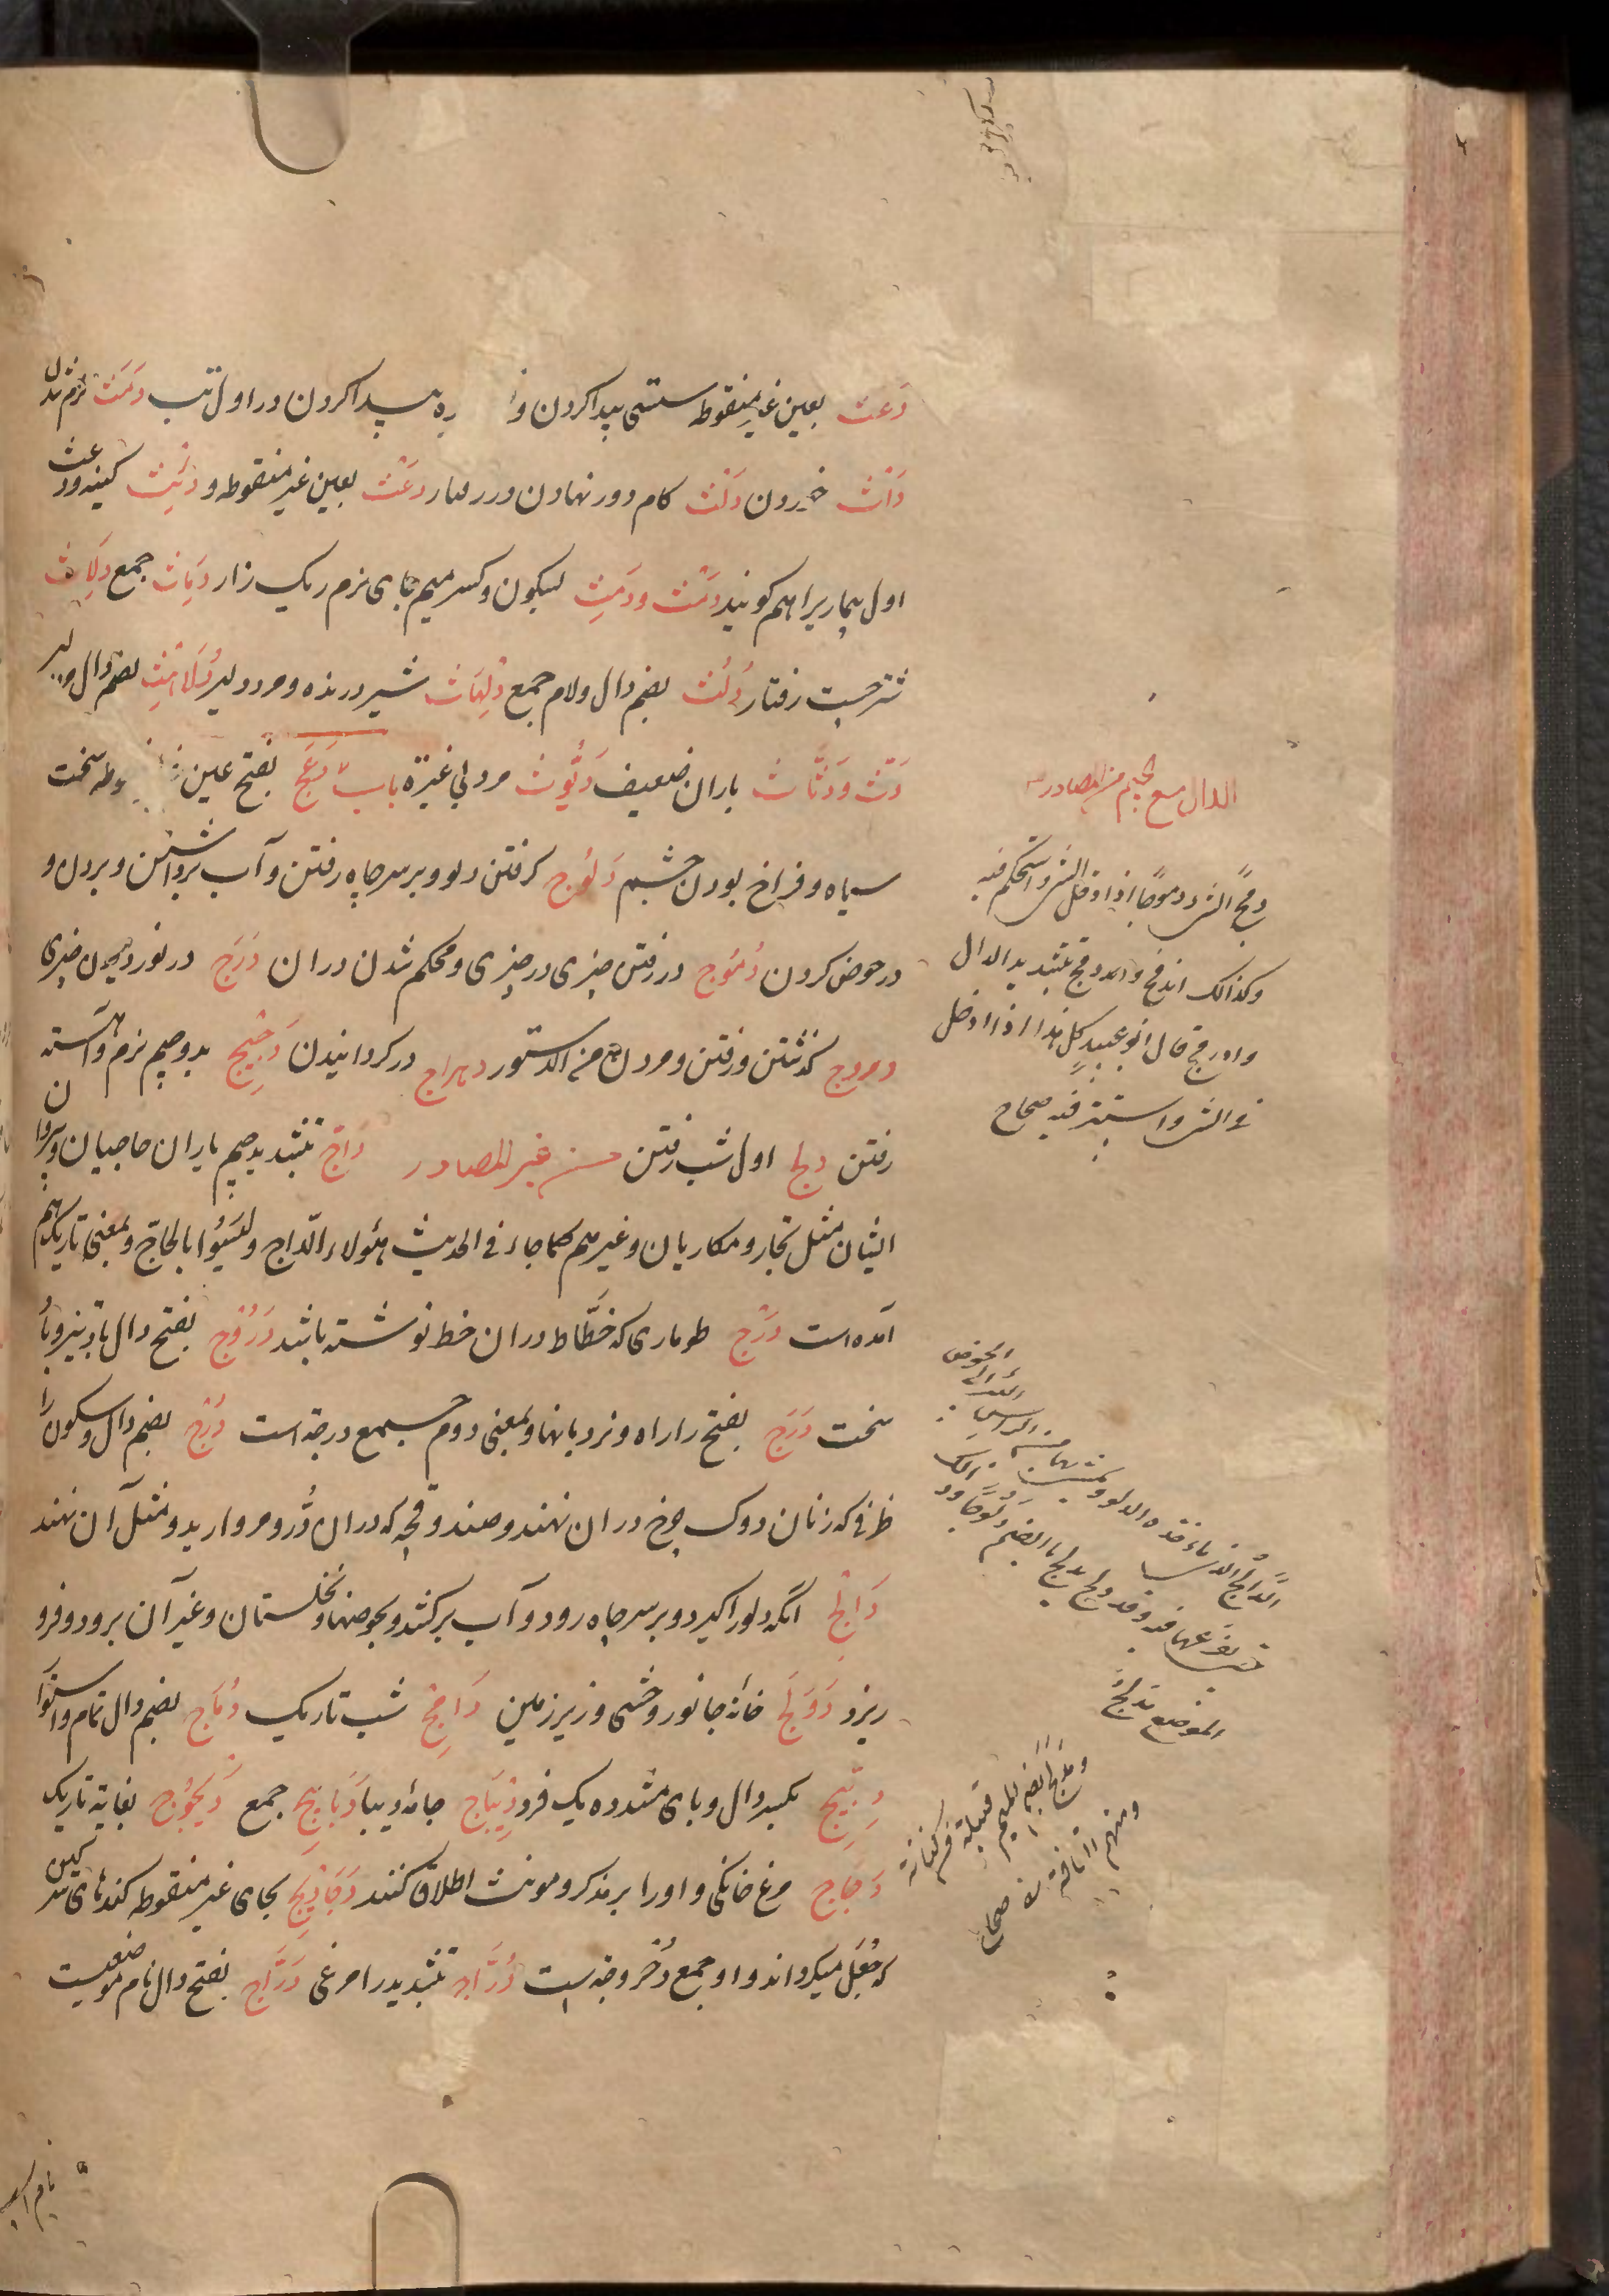 دَعث بعین غیر منقوطه سستی پیدا کردن و پیدا کردن در اول تب دَمَث نرم شدن
دَاث خوردن دَلث کام دور نهادن در رفتار دَعْث بعین غیر منقوطه و دِئِث کینه و دعث
اول بیماریرا هم کویند دَمْث و دَمِث بسکون و کسر میم جای نرم ریک زار دِمَاث جمع دِلَاث
شتر چست رفتار دُلُث بضم دال و لام جمع دِلْهَاث شیر درنده و مرد دلیر دُلَامِث بضم دال
دَث و دَثَّاث باران ضعیف دَیُّوث مرد بی غیرة باب دَعَج بفتح عین سخت
سیاه و فراخ بودن چشم دُلُوج کرفتن دلو و بر سر چاه رفتن و آب برداشتن و بردن و
در حوض کردن دُمُوج در رفتن چیزی در چیزی و محکم شدن در ان دَرَج در نوردیدن چیزی
دروج کذشتن و رفتن و مردن من الدستور دهراج در کردانیدن دَجِیج بدو جیم نرم و آهسته
رفتن دلج اول شب رفتن من غیر المصادر دَاجّ بتشدید جیم یاران حاجیان و پیروان
ایشان مثل تجار و مکاریان و غیرهم کما جاء فی الحدیث هؤلاء الدّاج و لیسوا بالحاجّ و بمعنی تاریک هم
آمده است دَرْج طوماری که خطّاط در ان خط نوشته باشد دَرُوج بفتح دال باد تیز و باد
سخت دَرَج بفتح را راه و نردبانها و بمعنی دوم جمع درجه است دُرْج بضم دال و سکون را
ظرفی که زنان دوک چرخ در ان نهند و صندوقچه که در ان دُر و مروارید و مثل آن نهند
دَالِج انکه دلو را کیرد و بر سر چاه رود و آب بر کشد و بحوضها و نخلستان و غیر آن برود و فرو
ریزد دَوْلَج خانۀ جانور وحشی و زیر زمین دَامِج شب تاریک دُمَاج بضم دال تمام و استوار
دِبِّیج بکسر دال و بای مشدده یک فرد دِیْبَاج جامۀ دیبا دَبَابِیج جمع دَیْجُوج بغایة تاریک
دَجَاج مرغ خانکی و اورا بر مذکر و مونث اطلاق کنند دَحَارِیج بحای غیر منقوطه کندهای سرکین
که جُعَل میکرداند و او جمع دُحروجه است دُرَّاج بتشدید را مرغی دَرَّاج بفتح دال نام موضعیست
الدال مع الجیم من المصادر
دمج الشئ دموجًا اذا دخل الشئ و استحکم فیه
و کذالک اندمج و ادمج بتشدید الدال
و ادرمج قال ابو عبید کل هذا اذا دخل
فی الشئ و استتر فیه صحاح
الدّالج الذی یاخذ الدلو و یمشی بها من راس البئر الی الحوض
حتی یفرغها فیه و قد دلج یدلج بالضم دلوجًا و ذالک
الموضع مدلج
و مدلج بضم المیم قبیلة من کنانة
و منهم القافة صحاح